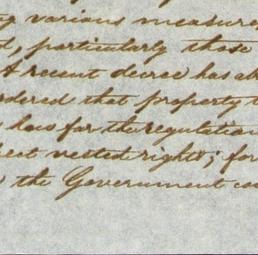 various measures,
particularly those
A recent decree has
ordered that property
law for the regulation
vested rights; for
the Government